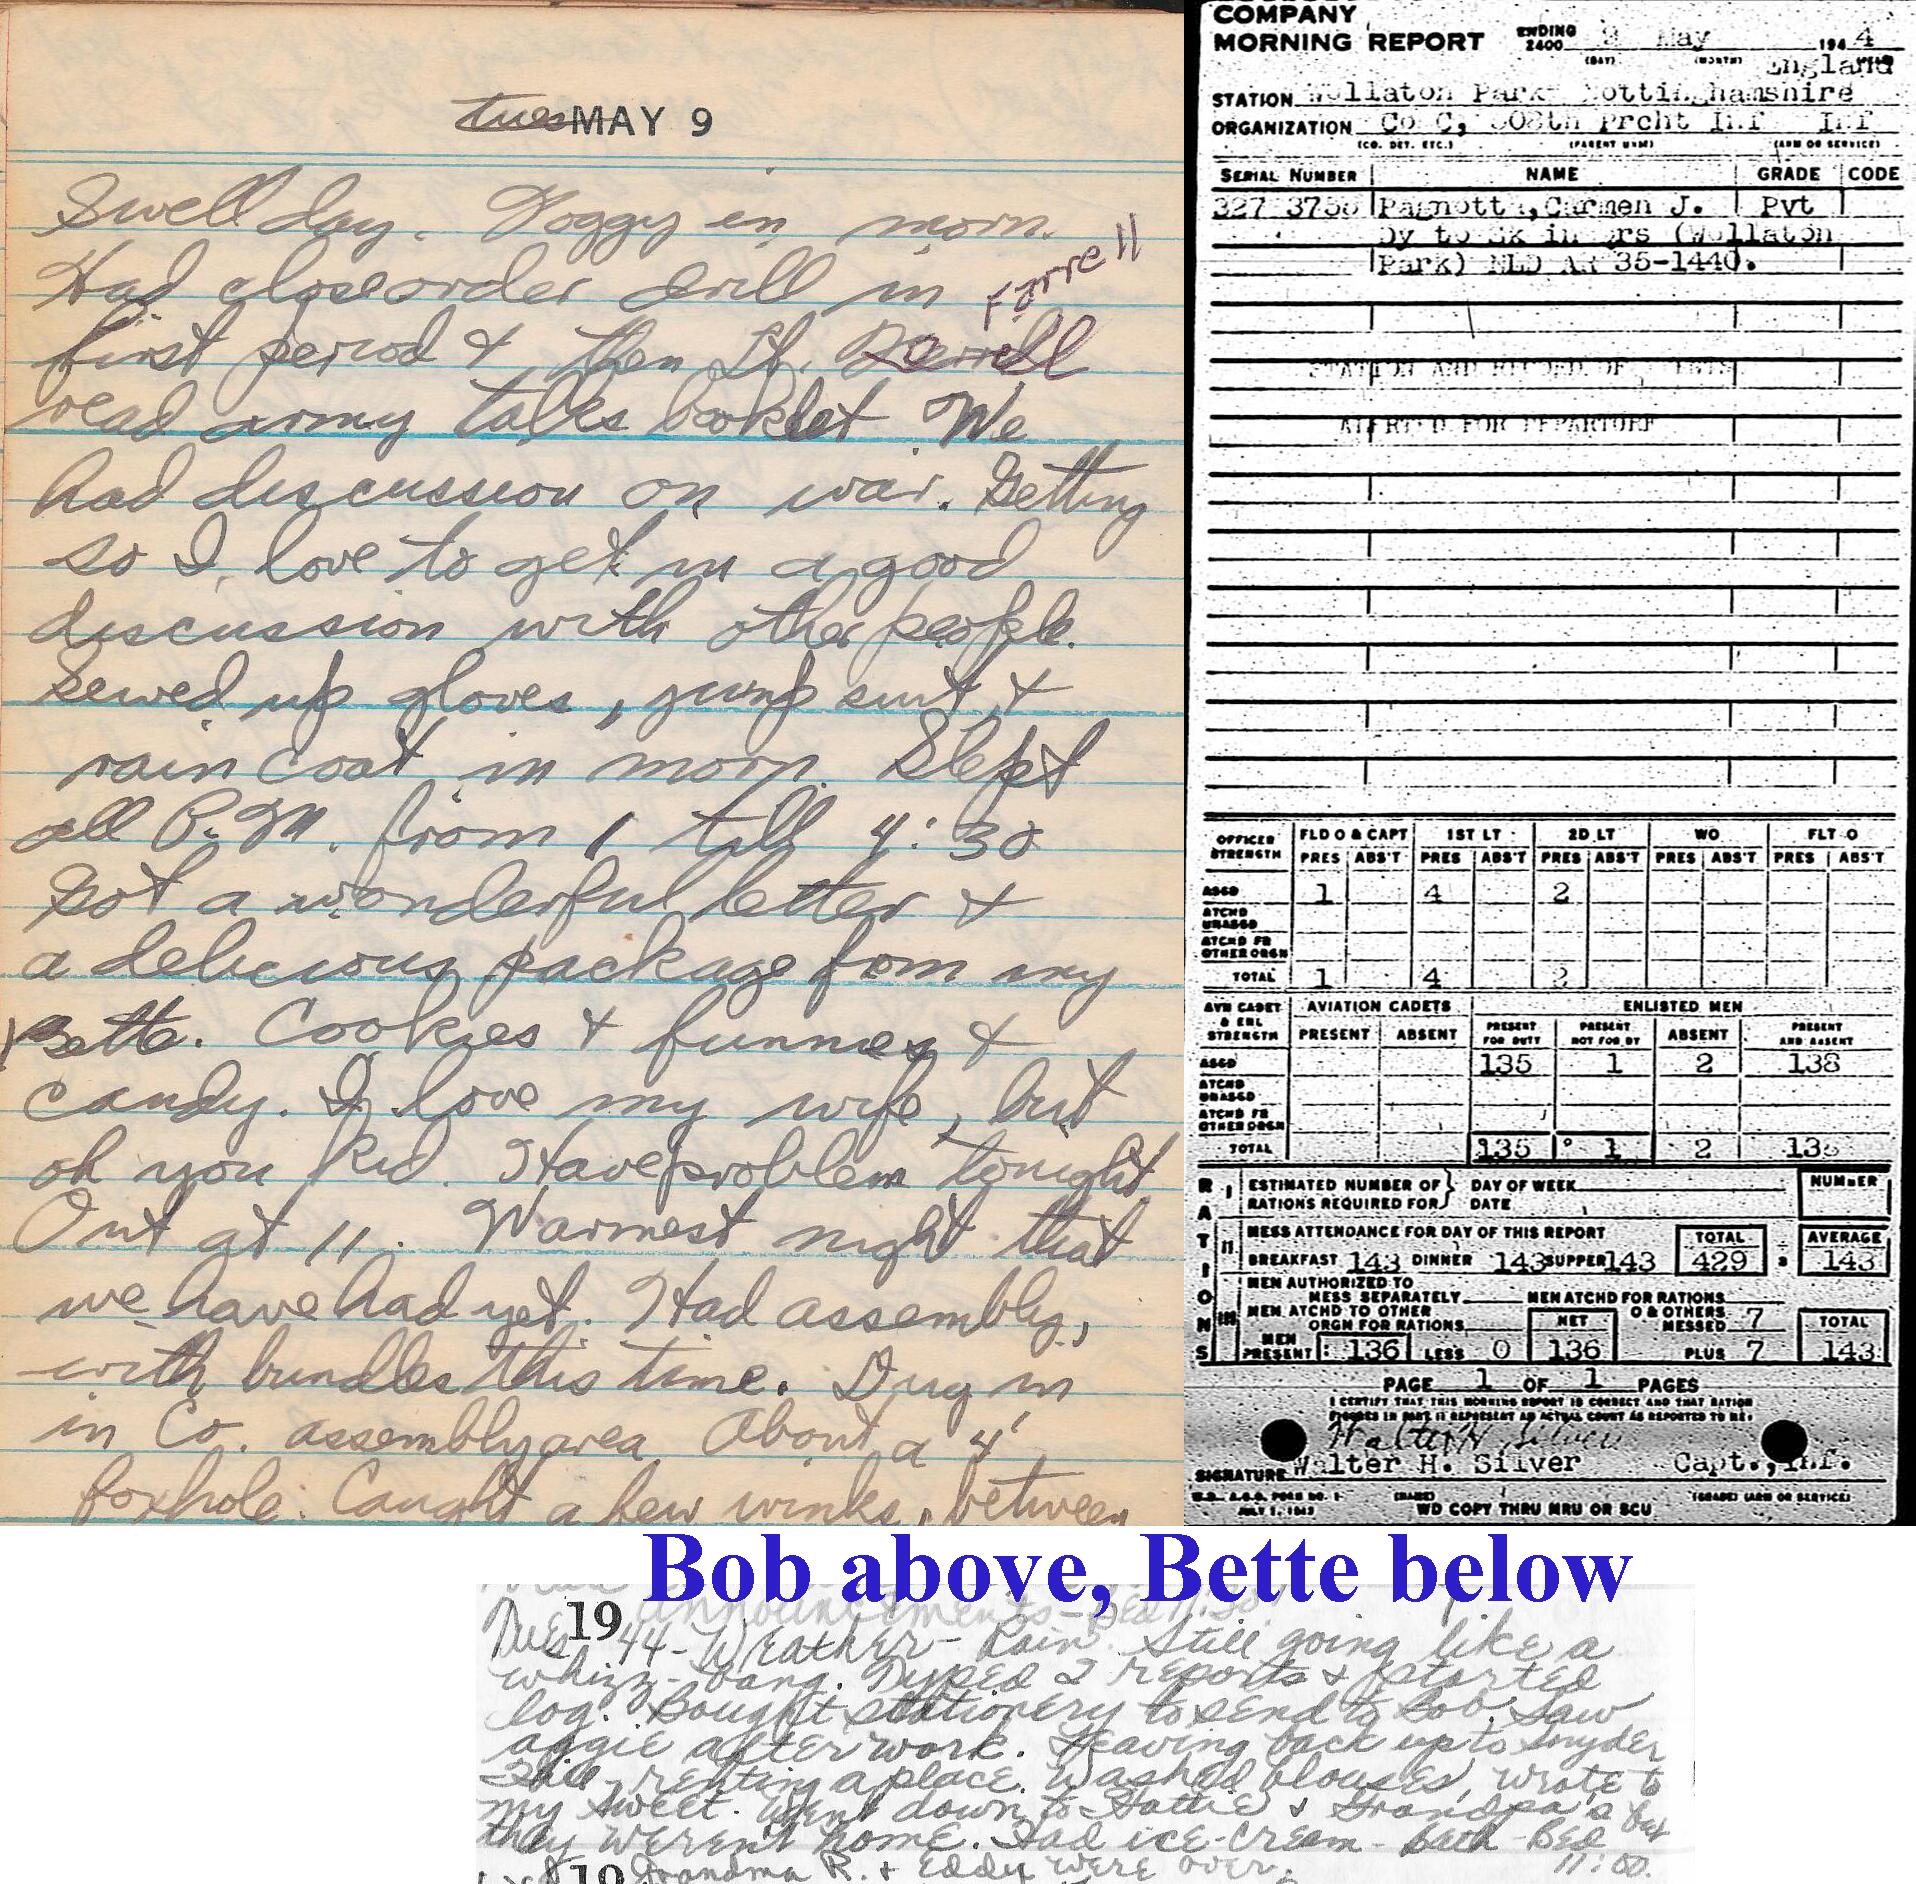 tues MAY 9
Swell day. Foggy in morn.
Had close order drill in
Farrell
first period & then Lt.
read army talks booklet We
had discussion on war. Getting
so I love to get in a good
discussion with other people.
Sewed up gloves, jump suit &
rain coat in morn. Slept
all P.M. from 1 till 4:30
Got a wonderful letter &
a delicious package from my
Bette. Cookies & funnies &
candy. I love my wife, but
oh you kid. Have problem tonight
Out at 11. Warmest night that
we have had yet. Had assembly,
with bundles this time. Dug in
in Co. assembly area About a 4'
foxhole. Caught a few winks, between
COMPANY
MORNING REPORT ENDING 2400 9 May 1944
(DAY) (MONTH)
England
STATION Wollaton Park Nottinghamshire
ORGANIZATION Co C, 508th Prcht Inf Inf
(CO. DET. ETC.) (PARENT UNIT) (ARM OR SERVICE)
SERIAL NUMBER NAME GRADE CODE
Pagnotta, Carmen J. Pvt
Dy to Sk in qrs (Wollaton
Park) NLD AR 35-1440.
STATION AND RECORD OF EVENTS
ALERTED FOR DEPARTURE
OFFICER STRENGTH FLD O & CAPT 1ST LT 2D LT WO FLT O
PRES ABS'T PRES ABS'T PRES ABS'T PRES ABS'T PRES ABS'T
ASGD 1 4 2
ATCHD UNASGD
ATCHD FR OTHER ORGN
TOTAL 1 4 2
AVN CADET & ENL STRENGTH AVIATION CADETS ENLISTED MEN
PRESENT ABSENT PRESENT FOR DUTY PRESENT NOT FOR DY ABSENT PRESENT AND ABSENT
ASGD 135 1 2 138
ATCHD UNASGD
ATCHD FR OTHER ORGN
TOTAL 135 1 2 138
RATIONS
I ESTIMATED NUMBER OF RATIONS REQUIRED FOR DAY OF WEEK DATE NUMBER
II MESS ATTENDANCE FOR DAY OF THIS REPORT TOTAL AVERAGE
BREAKFAST 143 DINNER 143 SUPPER 143 429 3 143
III MEN AUTHORIZED TO MESS SEPARATELY MEN ATCHD FOR RATIONS
MEN ATCHD TO OTHER ORGN FOR RATIONS NET O & OTHERS MESSED 7 TOTAL
MEN PRESENT 136 LESS 0 136 PLUS 7 143
PAGE 1 OF 1 PAGES
I CERTIFY THAT THIS MORNING REPORT IS CORRECT AND THAT RATION
FIGURES IN PART II REPRESENT AN ACTUAL COUNT AS REPORTED TO ME:
Walter H Silver
SIGNATURE Walter H. Silver Capt., Inf.
W.D., A.G.O. FORM NO. 1 (NAME) (GRADE) (ARM OR SERVICE)
JULY 1, 1943 WD COPY THRU MRU OR SCU
Bob above, Bette below
announcements - Bed 11:30!
Tues 19 44 - Weather - Rain. Still going like a
whizz-bang. Typed 2 reports & started
log. Bought stationery to send to Bob. Saw
aggie after work. Leaving back up to Snyder
renting a place. Washed blouses, wrote to
my sweet. Went down to Hattie & Grandpa's but
they weren't home. Had ice-cream - Bath - Bed
11:00.
19 Grandma R. & Eddy were over.